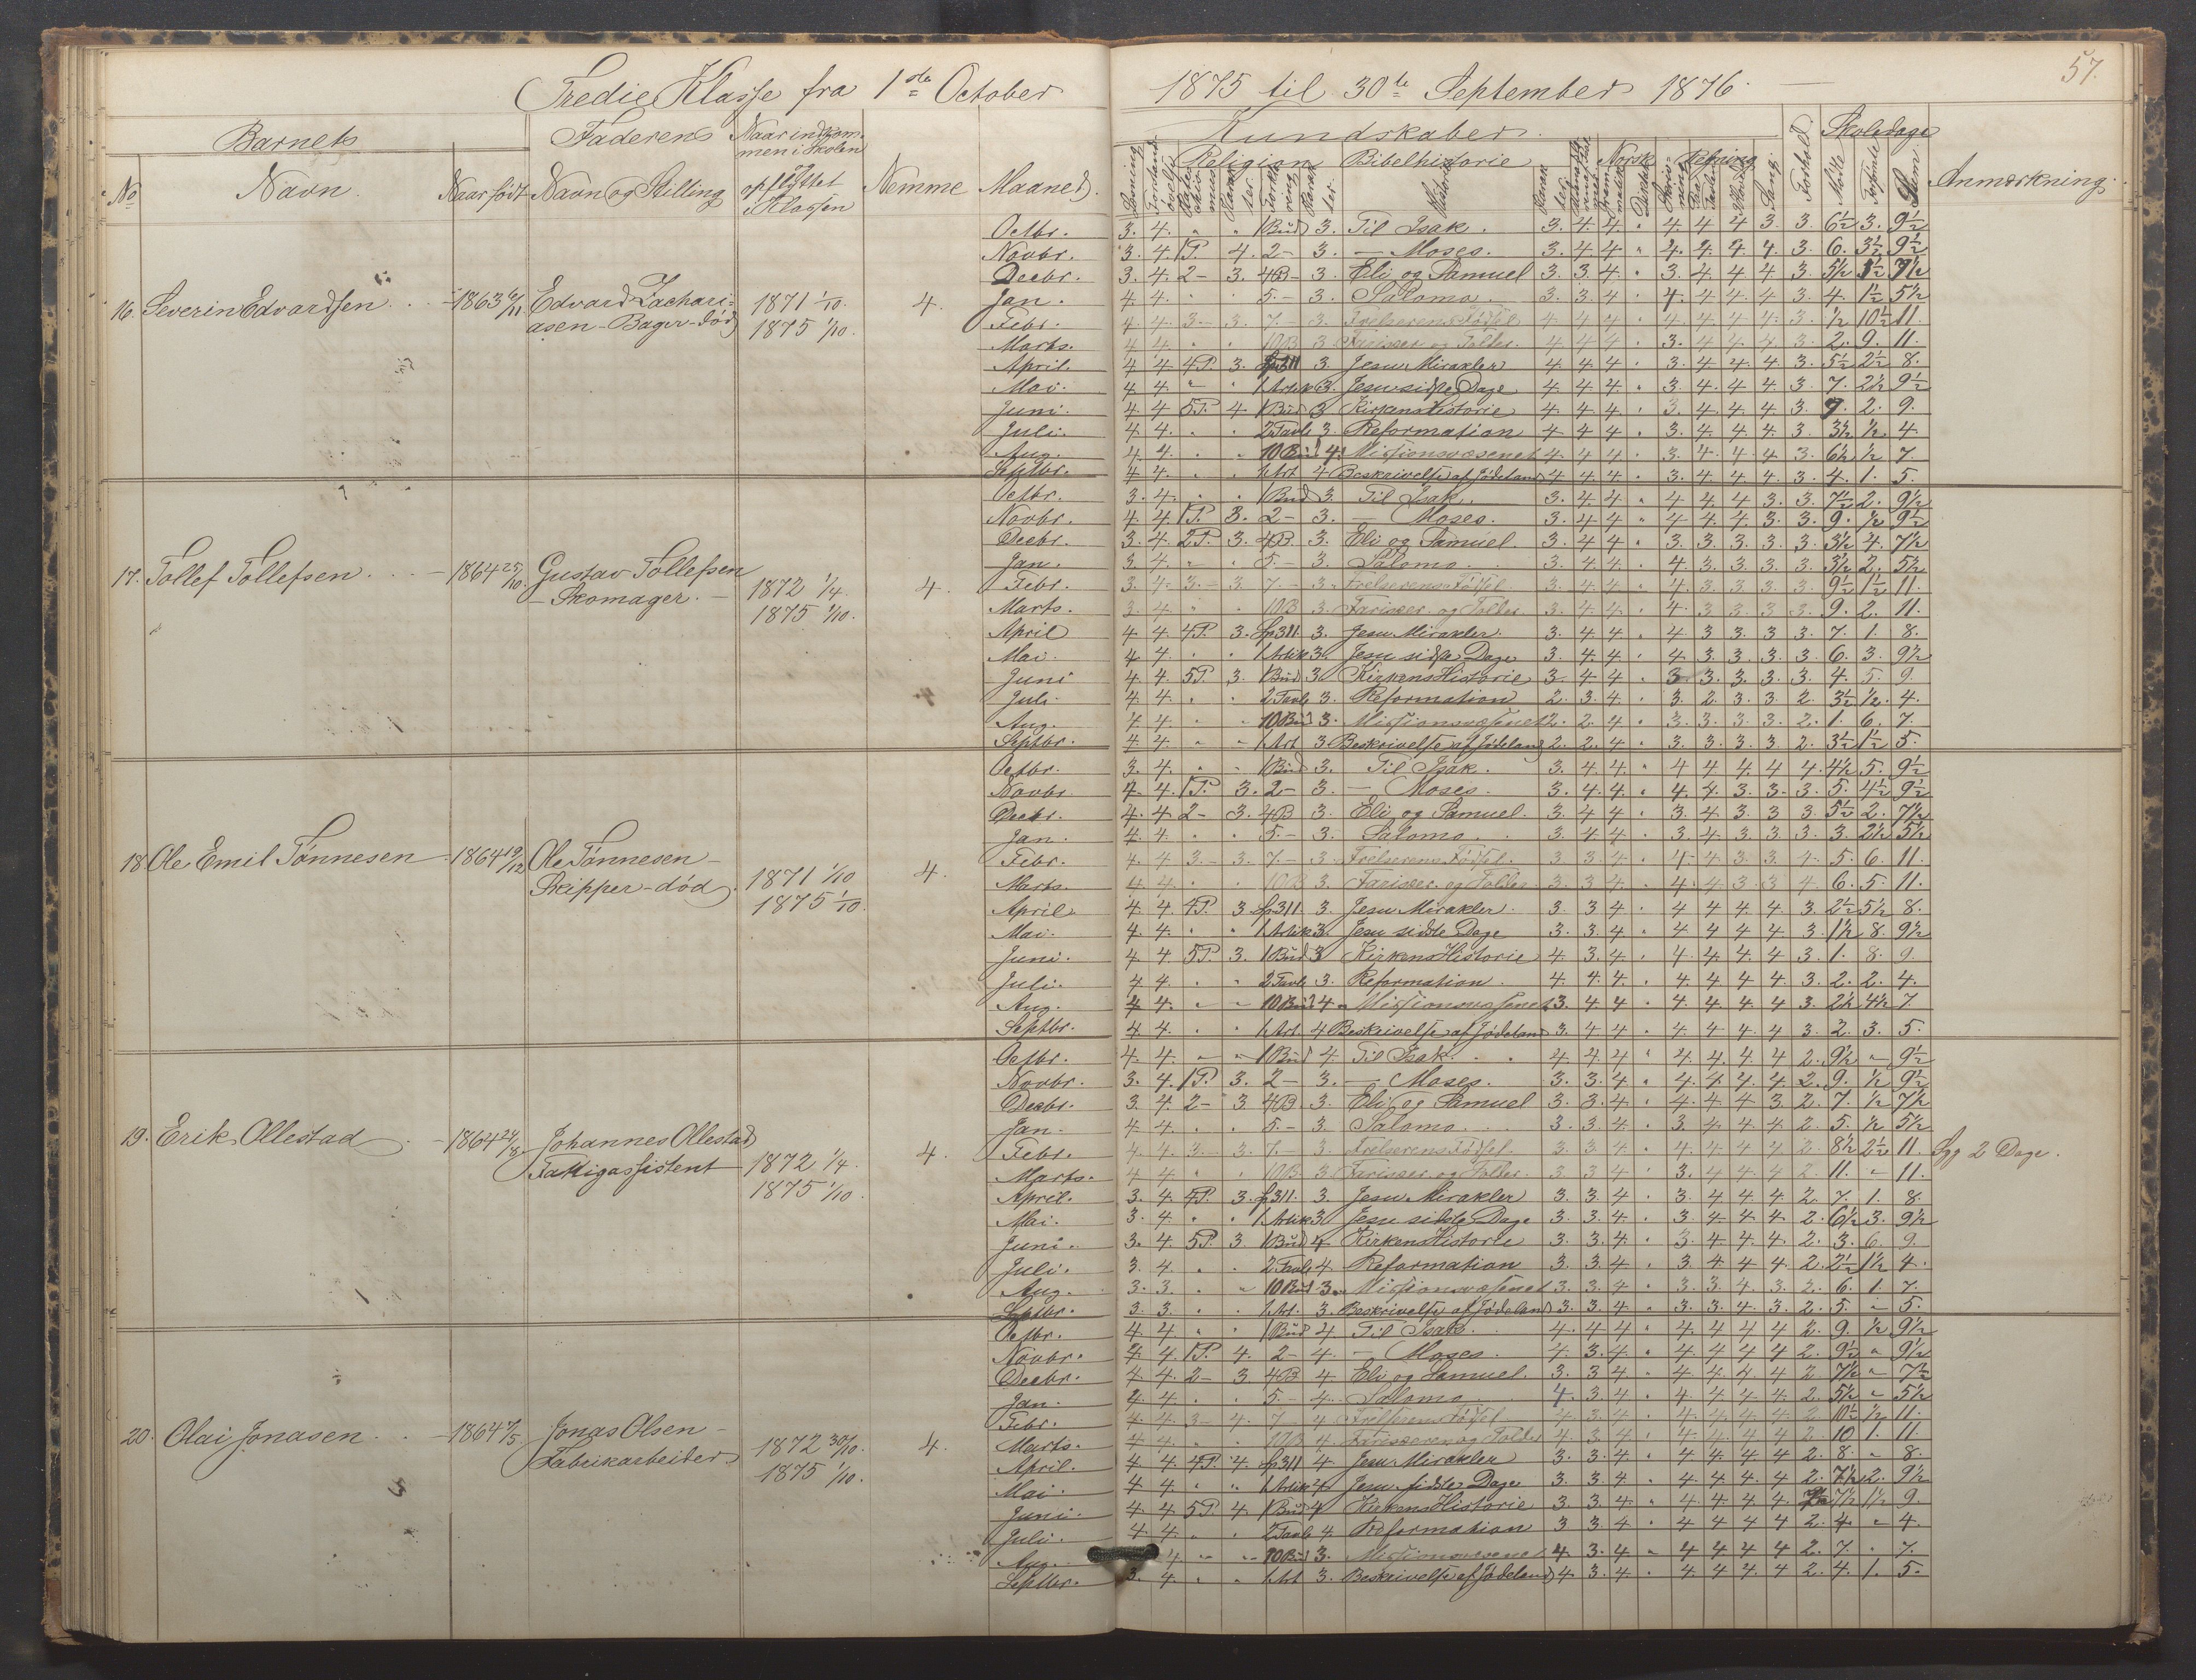 57.
Tredie Klasse fra 1ste October 1875 til 30te September 1876.
Barnets Faderens Naar indkommen i Skolen og opflyttet i Klassen Nemme Maaned.
No Navn. Naar født Navn og Stilling
Kundskaber.
Religion Bibelhistorie Norsk Regning Sang. Forhold. Skoledage Anmærkning.
Mødte Forsømte Sum
16. Severin Edvardsen. 1863 6/11 Edvard Zachariasen - Bager - død 1871 1/10. 1875 1/10. 4.
Octbr. 3. 4. " " 1 Bud 3. Til Isak. 3. 4. 4. " 4. 4 4 3 3. 6½ 3. 9½
Novbr. 3. 4. 1P. 4. 2 - 3. — Moses. 3. 4 4 " 4. 4. 4. 4 3 6. 3½ 9½
Decbr. 3. 4. 2 - 3. 4B - 3. Eli og Samuel 3. 3. 4. " 3. 4. 4 4 3.
Jan. 4. 4. 5. - 3. Salomo. 3. 3. 4 4. 4 4. 4 3. 4. 1½ 5½
Febr. 4. 4. 3 - 3. 7. - 3. Frelserens Fødsel 4 4 4 4. 4. 4. 4. 3. ½ 10½ 11.
Marts. 4 4. 10B 3 Farisæer og Tolder. 4. 4. 4 3. 4 4. 4 3. 2. 9. 11.
April. 4 4 4P. 3. 3 Jesu Mirakler 4 4 4. 3. 4. 4 4. 3. 5½ 2½ 8.
Mai. 4 4. 1 Artik 3. Jesu sidste Dage 4 4. 4 3. 4. 4 4. 3. 7. 2½ 9½
Juni. 4. 4 5P. 4. 1 Bud 3 Kirkens Historie 4. 4. 4. 3. 4. 4. 4 3. 7. 2. 9.
Juli. 4 4. 2 Tavle 3. Reformation 4 4 4 3. 4. 4. 4. 3. 3½ ½. 4
Aug. 4 4. 10 Bud 4. Missionsvæsenet 4. 4. 4. 3. 4. 4. 4 3. 6½ ½ 7.
Septbr. 4 4. 1 Art. 4 Beskrivelse af Jødeland 4 4. 4. 3. 4. 4 4. 3. 4. 1. 5.
17. Tollef Tollefsen. 1864 25/10. Gustav Tollefsen - Skomager. - 1872 1/4. 1875 1/10. 4.
Octbr. 3. 4. 1 Bud 3. Til Isak. 3. 4 4. 4 4. 4 3. 3. 7½ 2. 9½
Novbr. 4. 4. 1P. 3. 2 - 3. — Moses. 3. 4 4 " 4 4. 4. 3. 3. 9. ½ 9½
Decbr. 3. 4. 2P. 3. 4B. 3. Eli og Samuel. 3. 4 4. 3. 3. 3. 3. 3. 3½ 4. 7½
Jan. 3 4. 5. - 3. Salomo. 3. 4 4. 4. 3. 3. 3. 3. 3½ 2. 5½
Febr. 3. 4. 3. - 3 7. - 3. Frelserens Fødsel. 3. 4 4. 4. 3. 3. 3. 3. 9½ 1½ 11.
Marts 3. 4. 10B 3. Farisæer og Tolder 3. 4 4. 4. 3. 3. 3. 3. 9. 2. 11.
April 4 4. 4P. 3. 3. Jesu Mirakler. 3. 4. 4 4 3 3. 3 3. 7. 1. 8.
Mai. 4 4. 1 Artik 3. Jesu sidste Dage 3. 4. 4 4 3. 3. 3. 3. 6. 3. 9½
Juni 4 4. 5P. 3. 1 Bud 3. Kirkens Historie 3. 4 4. 3 3. 3. 3. 3. 4. 5. 9.
Juli. 4 4. 2 Tavle 3. Reformation 2. 3. 4. 3. 2. 3. 3 2. 3½ ½. 4.
Aug. 4 4. 10 Bud 3. Missionsvæsenet 2. 2. 4. 3. 3. 3. 3. 2. 1. 6. 7.
Septbr. 4 4. 1 Art 3 Beskrivelse af Jødeland 2. 2. 4. 3. 3. 3. 3 2. 3½ 1½ 5.
18. Ole Emil Tønnesen 1864 19/12 Ole Tønnesen - Skipper - død 1871 1/10 1875 1/10. 4.
Octbr. 3. 4. 1 Bud 3. Til Isak. 3. 4. 4. 4 4 4. 4 4. 4½ 5. 9½
Novbr. 4. 4. 1P. 3. 2 - 3. — Moses. 3. 4. 4. 4. 4. 3 3. 3. 5. 4½ 9½
Decbr. 4. 4 2 - 3. 4B 3. Eli og Samuel. 3. 4 4. 3. 4. 3. 3 3 5½ 2. 7½
Jan. 4 4. 5. - 3. Salomo. 3. 4 4. 3 4. 3. 3. 3. 3. 2½ 5½
Febr. 4. 4 3. - 3. 7. - 3 Frelserens Fødsel. 3. 3. 4. 4 4 3. 3. 4. 5. 6. 11.
Marts. 4 4. 10B 3. Farisæer og Tolder. 3. 3 4. 4. 4 3 3 4. 6. 5. 11.
April. 4. 4. 4P. 3. 3. Jesu Mirakler. 3. 3 4. 4 4 4. 4. 3. 2½ 5½ 8.
Mai. 4. 4. 1 Artik 3. Jesu sidste Dage 3. 3. 4. 4 4 4 4 3. 1½ 8. 9½
Juni. 4 4. 5P. 3. 1 Bud 3 Kirkens Historie 4. 3. 4. 4 4. 4. 4 3. 1. 8. 9.
Juli. 4 4. 2 Tavle 3. Reformation. 4. 4. 4. 4. 4 4 4 3. 2. 2. 4.
Aug. 4 4. 10 Bud 4 Missionsvæsenet 3. 4 4 4. 4. 4. 4 3. 2½ 4½ 7.
Septbr. 4 4. 1 Art. 4 Beskrivelse af Jødeland 3. 4 4. 4 4 4. 4 3. 2. 3. 5.
19. Erik Ollestad 1864 24/8 Johannes Ollestad Fattigassistent 1872 1/4. 1875 1/10. 4.
Octbr. 4. 4. 1 Bud 4. Til Isak. 4. 4. 4 4. 4. 4. 4 2. 9½ " 9½
Novbr. 3. 4. 1P. 3. 2 - 3. — Moses. 3. 3. 4. 4. 4. 4. 4. 2. 9. ½ 9½
Decbr. 3. 4. 2 - 3 4B 3. Eli og Samuel 3. 3. 4. 4. 4 4 3. 2. 7. ½ 7½
Jan. 4 4. 5. - 3 Salomo. 3. 3. 4. 3. 4 4 4 2. 5. ½ 5½
Febr. 4. 4. 3 - 3. 7. - 3. Frelserens Fødsel. 3. 3 4 4. 4. 4 4 2. 8½ 2½ 11. Syg 2 Dage.
Marts. 4 4. 10B 3 Farisæer og Tolder. 3 3 4 3. 4 4 4 2. 11. " 11.
April. 3. 4. 4P. 3. 3. Jesu Mirakler 3. 3. 4 3. 4 4. 4. 2. 7. 1. 8.
Mai. 3. 4. 1 Artik 3 Jesu sidste Dage 3. 3. 4. 3 4 4 4. 2. 6½ 3. 9½
Juni. 3. 4. 5P. 3 1 Bud 4 Kirkens Historie 3. 3. 4. 3. 4 4. 4. 2. 3. 6. 9.
Juli. 3. 4. 2 Tavle 4. Reformation 3. 3. 4 3. 4 4 4 2. 2½ 1½ 4.
Aug. 3. 3. 10 Bud 3. Missionsvæsenet 3. 3. 4 3. 3. 4. 3. 2. 6. 1. 7.
Septbr. 3. 3. 1 Art. 3. Beskrivelse af Jødeland 3. 3. 4 3. 3. 4 3. 2. 5. " 5.
20. Olai Jonasen. 1864 7/5. Jonas Olsen - Fabrikarbeider 1872 30/10. 1875 1/10. 4.
Octbr. 4 4. 1 Bud 4. Til Isak. 4. 4 4 4. 4 4 4 2. 9. ½ 9½
Novbr. 4 4. 1P. 4. 2 - 4. — Moses. 4. 3. 4. 4. 4 4 4 2. 9½ " 9½
Decbr. 4 4. 2 - 3. 4B 4 Eli og Samuel. 3. 3 4 4. 4. 4. 4 2 7½ " 7½
Jan. 4 4. 5. - 4. Salomo 4. 3 4 4. 4 4 4 2. 5½ " 5½
Febr. 4 4. 3 - 4. 7 - 4 Frelserens Fødsel 4 3. 4. 4. 4. 4. 4. 2. 10½ ½ 11.
Marts. 4 4. 10B 4. Farisæeren og Tolder 4. 3. 4 4. 4 4. 4 2. 10 1. 11.
April. 4. 4. 4P. 4. 4 Jesu Mirakler 3. 3. 4 4 4 4 4 2. 8. " 8.
Mai. 4 4. 1 Artik 4 Jesu sidste Dage 3. 3. 4 4. 4. 4. 4 2. 7½ 2. 9½
Juni. 4 4 5P. 4 1 Bud 4 Kirkens Historie 3. 3. 4. 4. 4. 4 4. 7½ 1½ 9.
Juli. 4 4. 2 Tavle 4. Reformation 3 3. 4 4 4 4 4 2. 4 " 4.
Aug. 4 10 Bud 3. Missionsvæsenet 4 3. 4. 4 4 4 4 2. 7. " 7.
Septbr. 3. 4. 1 Art 3. Beskrivelse af Jødeland 4 3. 4. 4. 4. 4 4 2. 4. 1. 5.